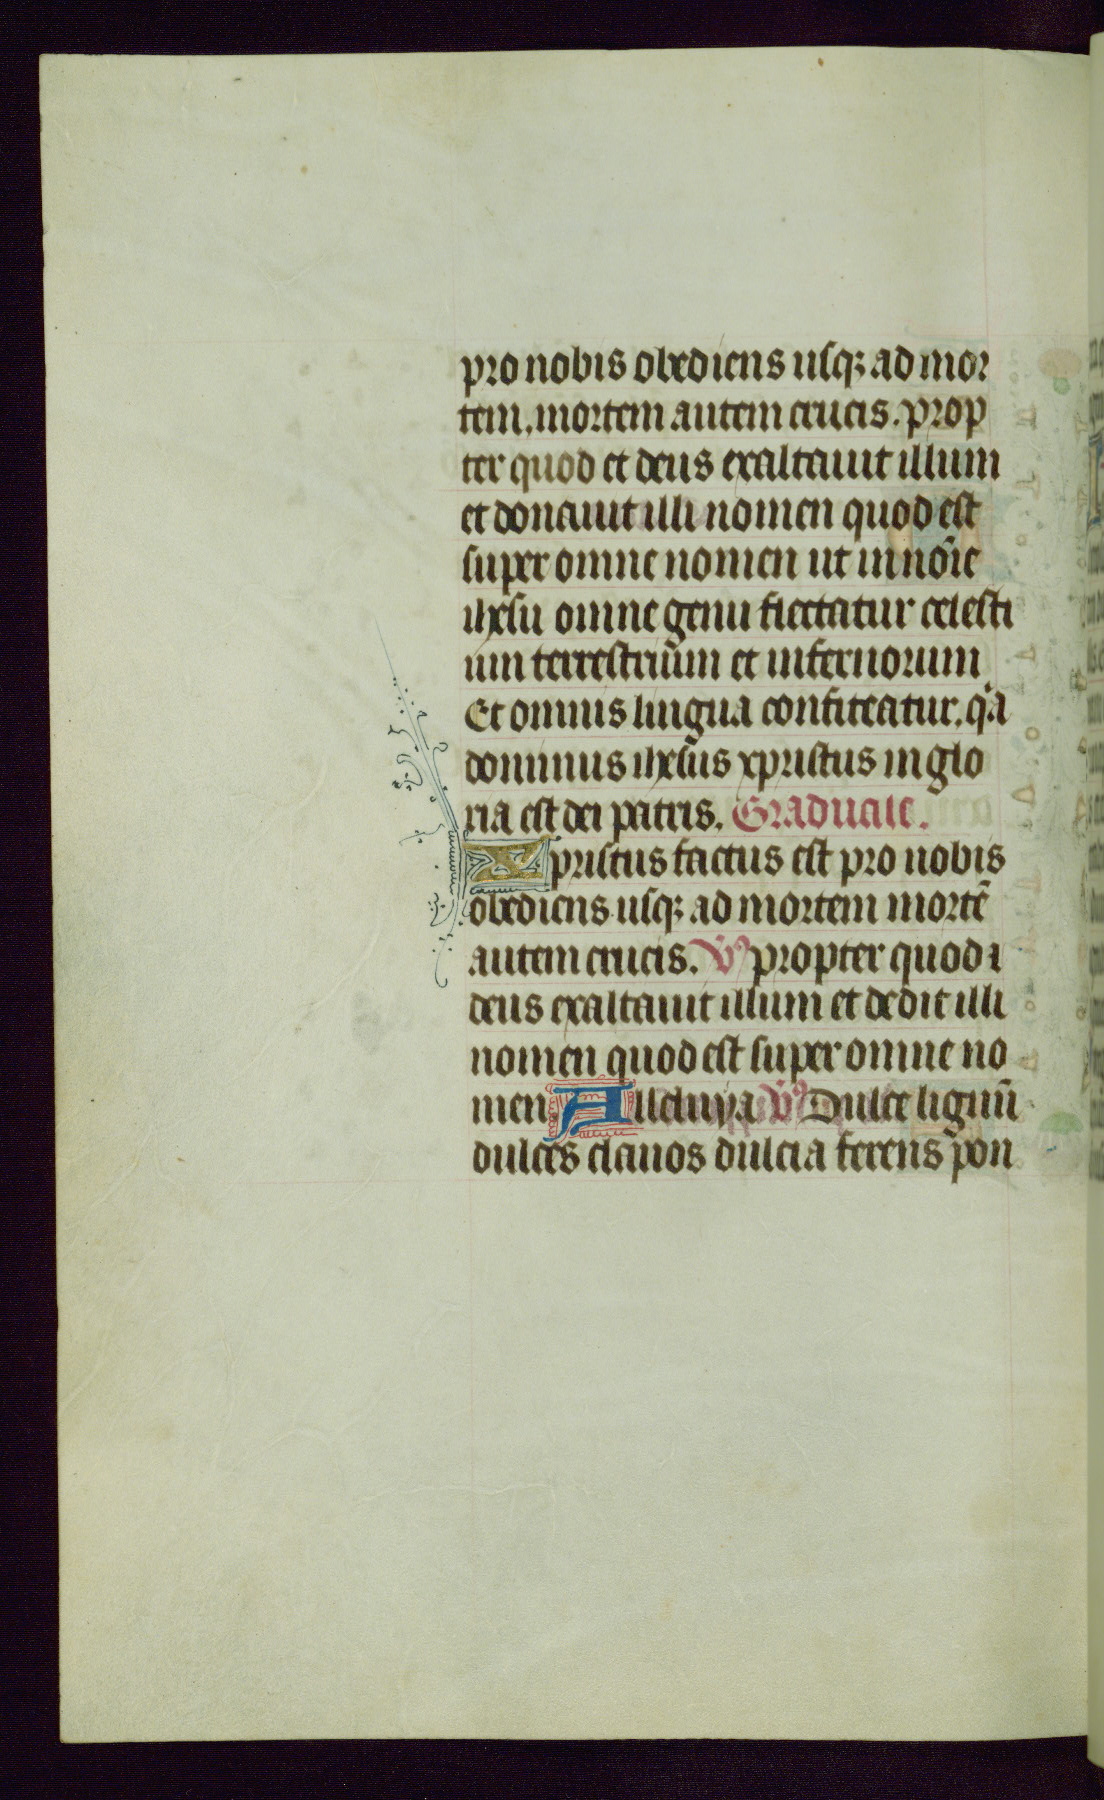 pro nobis obediens usq; ad mor
tem. mortem autem crucis. prop
ter quod et deus exaltauit illum
et donauit illi nomen quod est
super omne nomen ut in nōie
ihesu omne genu flectatur celesti
um terrestriūm et infernorum
Et omnis lingua confiteatur. qa
dominus ihesus xpristus in glo
ria est dei patris. Graduale.
Xpristus factus est pro nobis
obediens usq; ad mortem mortē
autem crucis. V̕ propter quod ⁊
deus exaltauit illum et dedit illi
nomen quod est super omne no
men Alleluya V̕ Dulce lignū
dulces clauos dulcia ferens pon